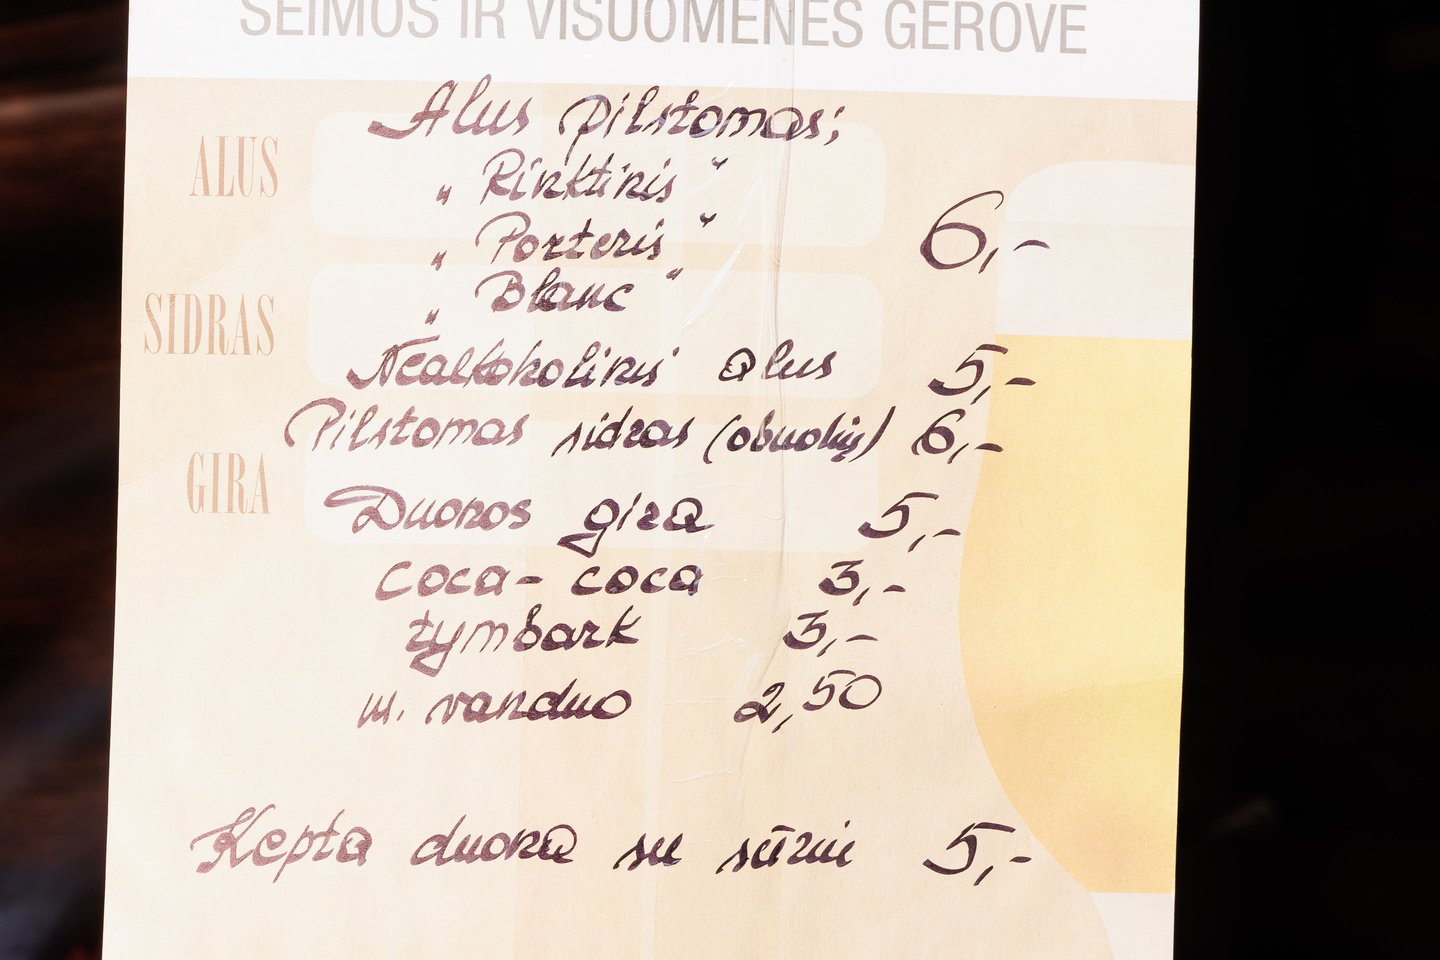 ŠEIMOS IR VISUOMENĖS GEROVĖ
Alus pilstomas;
ALUS
„Rinktinis"
„Porteris" 6,-
„Blanc"
SIDRAS
Nealkoholinis alus 5,-
Pilstomas sidras (obuolių) 6,-
GIRA
Duonos gira 5,-
coca-coca 3,-
tymbark 3,-
m. vanduo 2,50
Kepta duona su sūriu 5,-